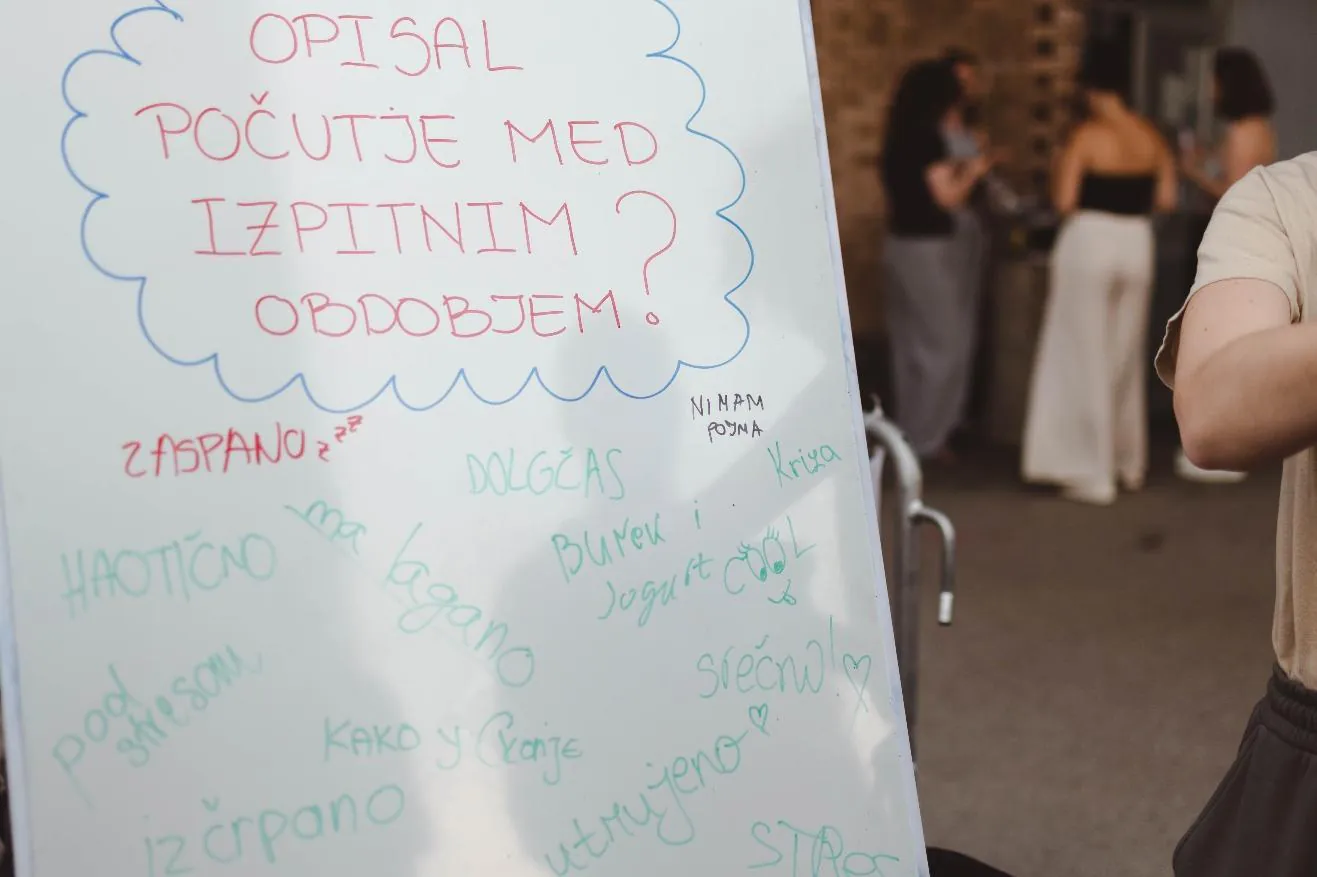 OPISAL
POČUTJE MED
IZPITNIM
OBDOBJEM?
NIMAM
POJMA
ZASPANO zzzz
DOLGČAS
Kriza
HAOTIČNO
ma lagano
Burek i
Jogurt COOL
pod
stresom
srečno! ♡
KAKO
izčrpano
utrujeno ♡